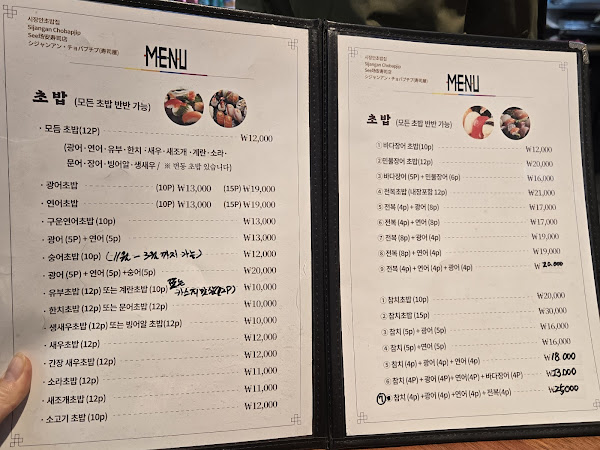 시장안초밥집
Sijangan Chobapjip
シジャンアン・チョバプチプ(寿司屋)
MENU
초밥 (모든 초밥 반반 가능)
· 모듬 초밥(12P) ₩12,000
(광어·연어·유부·한치·새우·새조개·계란·소라·
문어·장어·빙어알·생새우 / ※ 변동 초밥 있습니다)
· 광어초밥 (10P) ₩13,000 (15P) ₩19,000
· 연어초밥 (10P) ₩13,000 (15P) ₩19,000
· 구운연어초밥 (10p) ₩13,000
· 광어 (5P) + 연어 (5p) ₩13,000
· 숭어초밥 (10p) (11월 - 3월까지 가능) ₩12,000
· 광어 (5P) + 연어 (5p) + 숭어(5p) ₩20,000
· 유부초밥 (12p) 또는 계란초밥 (10p) 또는 ₩10,000
· 한치초밥 (12p) 또는 문어초밥 (12p) ₩10,000
· 생새우초밥 (12p) 또는 빙어알 초밥(12p) ₩10,000
· 새우초밥 (12p) ₩12,000
· 간장 새우초밥 (12p) ₩12,000
· 소라초밥 (12p) ₩11,000
· 새조개초밥 (12p) ₩11,000
· 소고기 초밥 (10p) ₩12,000
시장안초밥집
Sijangan Chobapjip
シジャンアン・チョバプチプ(寿司屋)
MENU
초밥 (모든 초밥 반반 가능)
① 바다장어초밥(10p) ₩12,000
② 민물장어 초밥(12p) ₩20,000
③ 바다장어 (5P) + 민물장어 (6p) ₩16,000
④ 전복초밥 (내장포함 12p) ₩21,000
⑤ 전복 (4p) + 광어 (8p) ₩17,000
⑥ 전복 (4p) + 연어 (8p) ₩17,000
⑦ 전복 (8p) + 광어 (4p) ₩19,000
⑧ 전복 (8p) + 연어 (4p) ₩19,000
⑨ 전복 (4p) + 연어 (4p) + 광어 (4p) ₩20.000
① 참치초밥(10p) ₩20,000
② 참치초밥(15p) ₩30,000
③ 참치 (5p) + 광어(5p) ₩16,000
④ 참치 (5p) +연어(5p) ₩16,000
⑤ 참치 (4p) + 광어 (4p) + 연어 (4p) ₩18.000
⑥ 참치 (4P) + 광어 (4P)+ 연어(4P) + 바다장어(4P) ₩23.000
⑦ 참치 (4p) +광어 (4p) +연어 (4p) + 전복(4p) ₩25,000